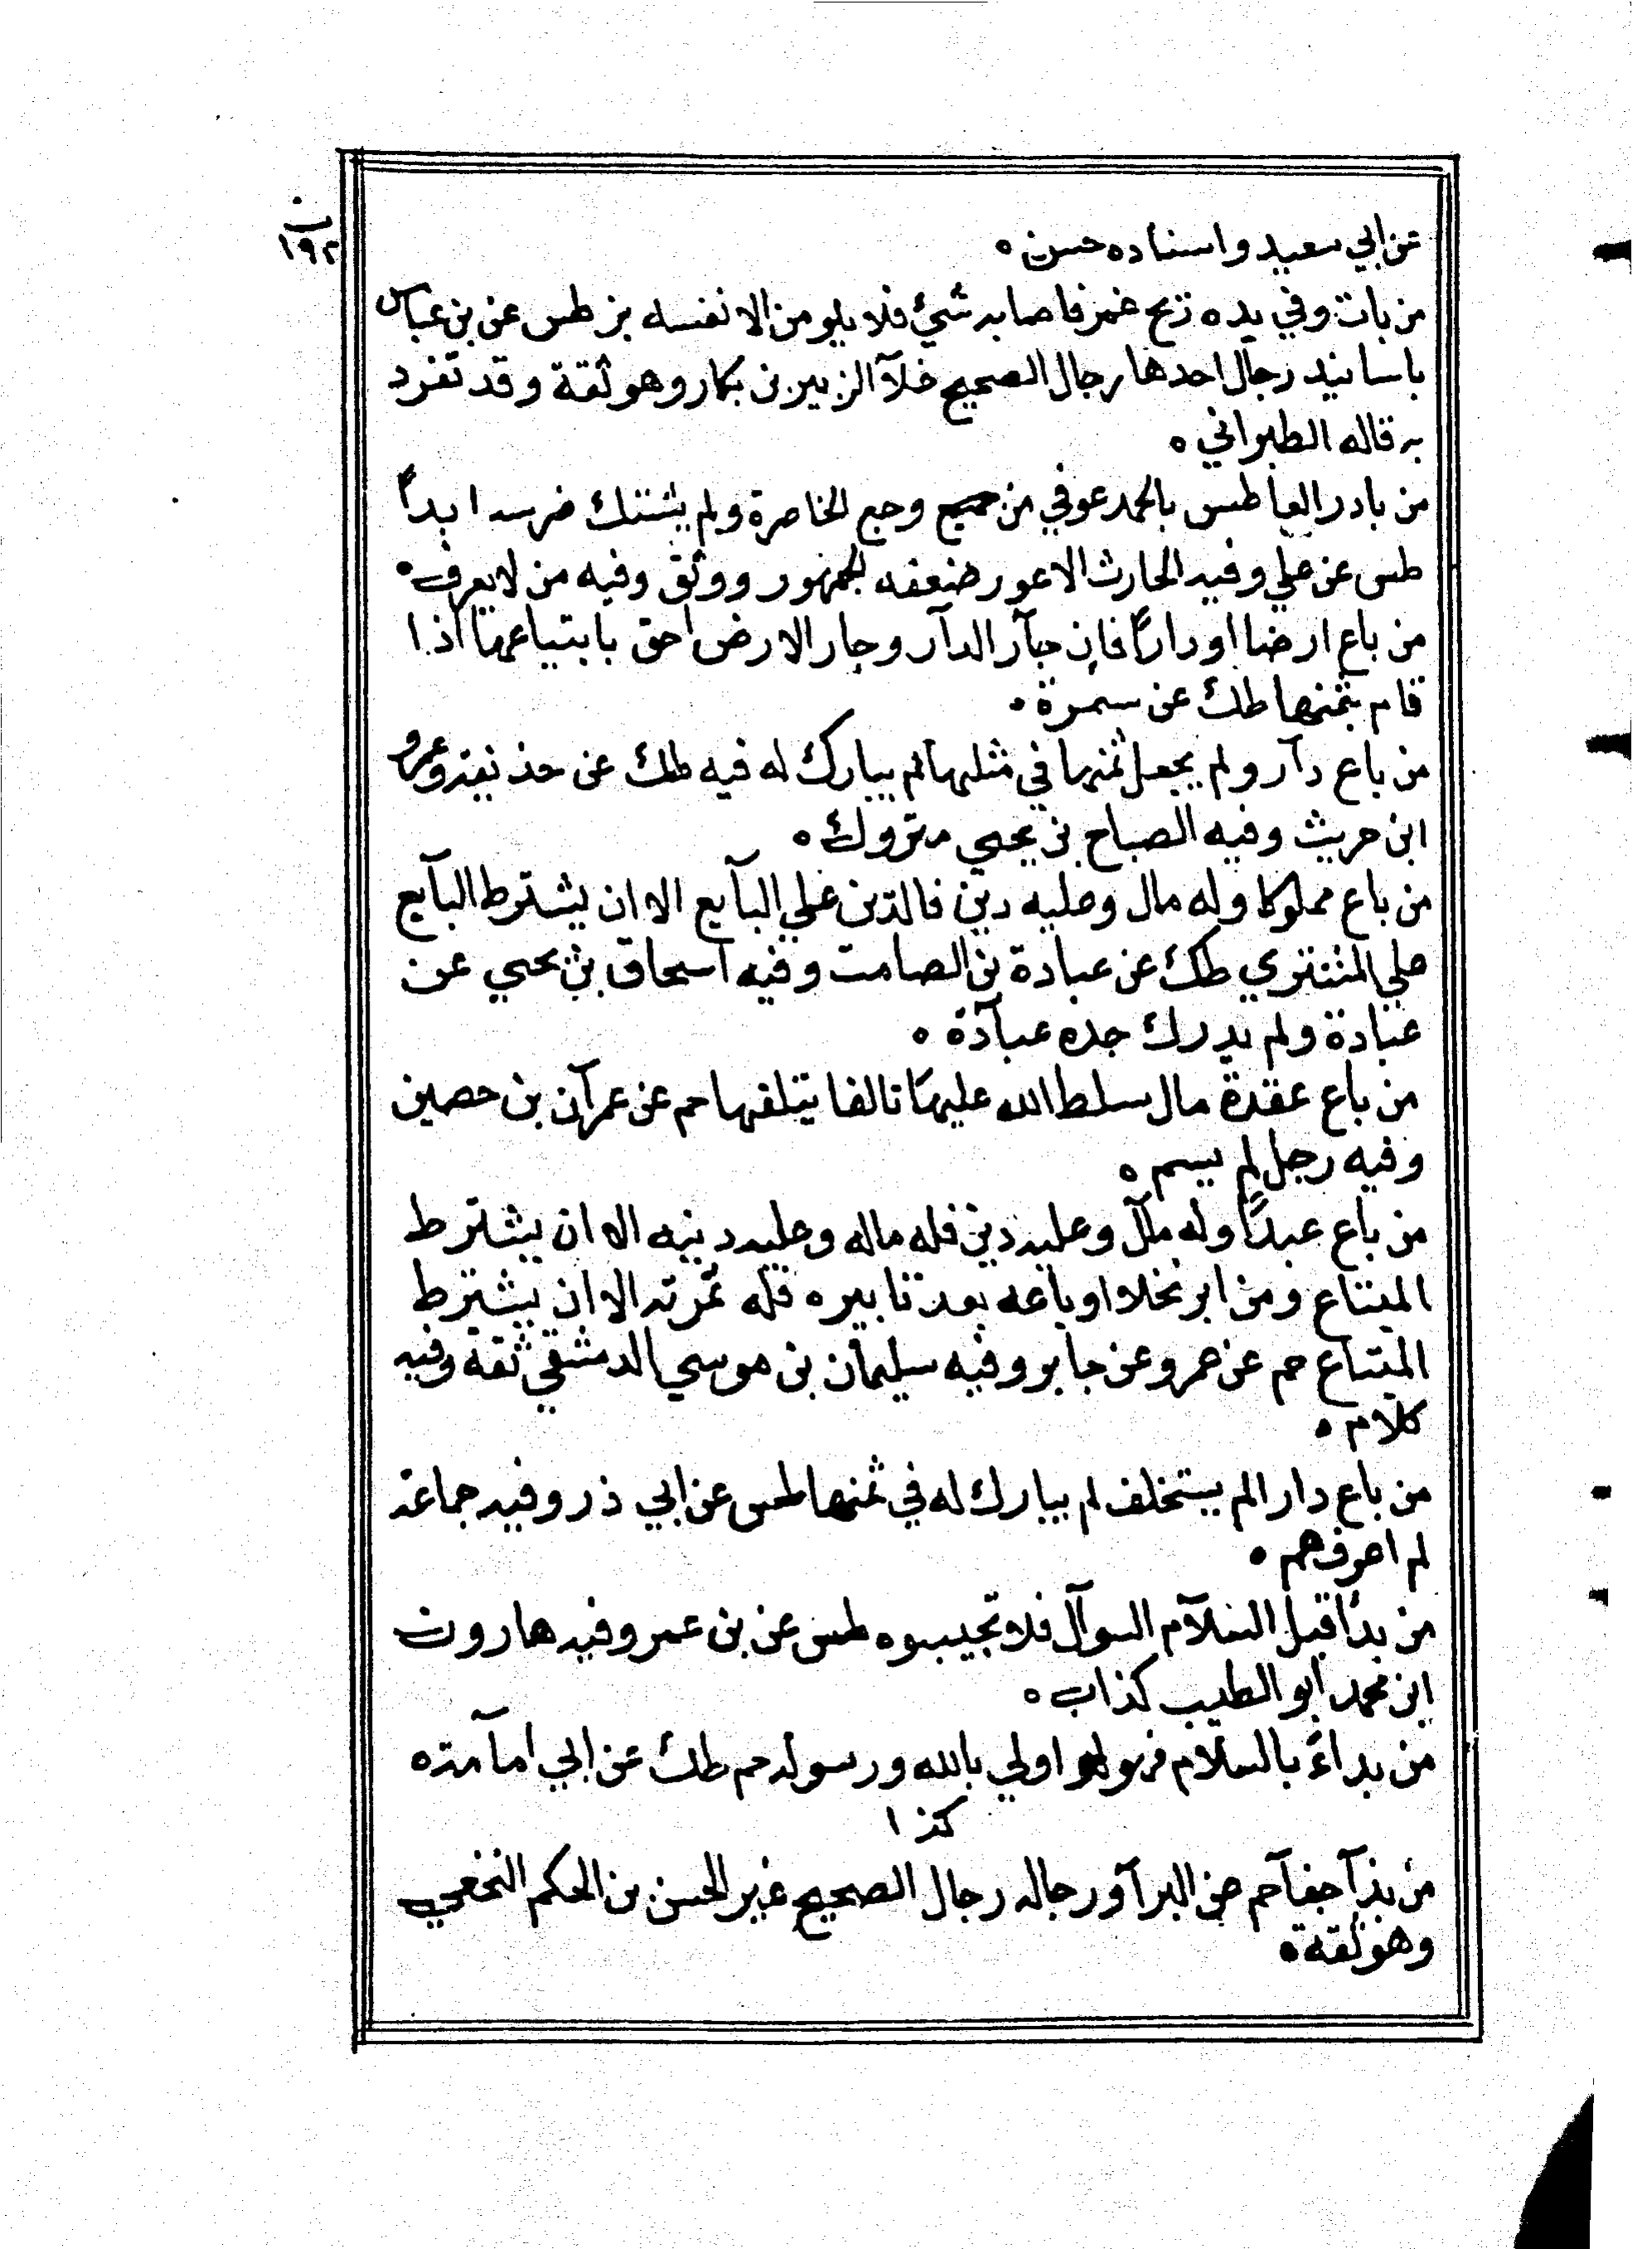 ١٩٢
عن ابي سعيد واسناده حسن ه
من بات وفي يده ريح غمر فاصابه شئ فلا يلومن الا نفسه بز طس عن بن عباس
باسانيد رجال احدها رجال الصحيح خلآ الزبير بن بكار وهو ثقة وقد تفرد
به قاله الطبراني ه
من بادر العاطس بالحمد عوفي من وجع الخاصرة ولم يشتك ضرسه ابداً
طس عن علي وفيه الحارث الاعور ضعفه الجمهور ووثق وفيه من لا يعرف ه
من باع ارضا او داراً فان جآر الدآر وجار الارض احق بابتياعها اذا
قام بثمنها طك عن سمرة ه
من باع دآر ولم يجعل ثمنها في مثلها لم يبارك له فيه طك عن حذيفه وعمرو
ابن حريث وفيه الصباح بن يحيي متروك ه
من باع مملوكا وله مال وعليه دين فالدين علي البآيع الا ان يشترط البآيع
علي المشتري طك عن عبادة بن الصامت وفيه اسحاق بن يحيي عن
عبادة ولم يدرك جده عبآدة ه
من باع عقدة مال سلط الله عليها تالفا يتلفها حم عن عمرآن بن حصين
وفيه رجل لم يسم ه
من باع عبداً وله مال وعليه دين فله ماله وعليه دينه الا ان يشترط
المبتاع ومن ابر نخلا او باعه بعد تابيره فله ثمرته الا ان يشترط
المبتاع حم عن عمر وعن جابر وفيه سليمان بن موسي الدمشقي ثقة وفيه
كلام ه
من باع دار الم يستخلف لم يبارك له في ثمنها طس عن ابي ذر وفيه جماعة
لم اعرفهم ه
من بدأ قبل السلآم السوآل فلا تجيبوه طس عن بن عمر وفيه هارون
ابن محمد ابو الطيب كذاب ه
من بداء بالسلام فهو اولي بالله ورسوله حم طك عن ابي امآمة ه
كذا
من بدآ جفآ حم عن البرآ ورجاله رجال الصحيح غير الحسن بن الحكم النخعي
وهو ثقه ه